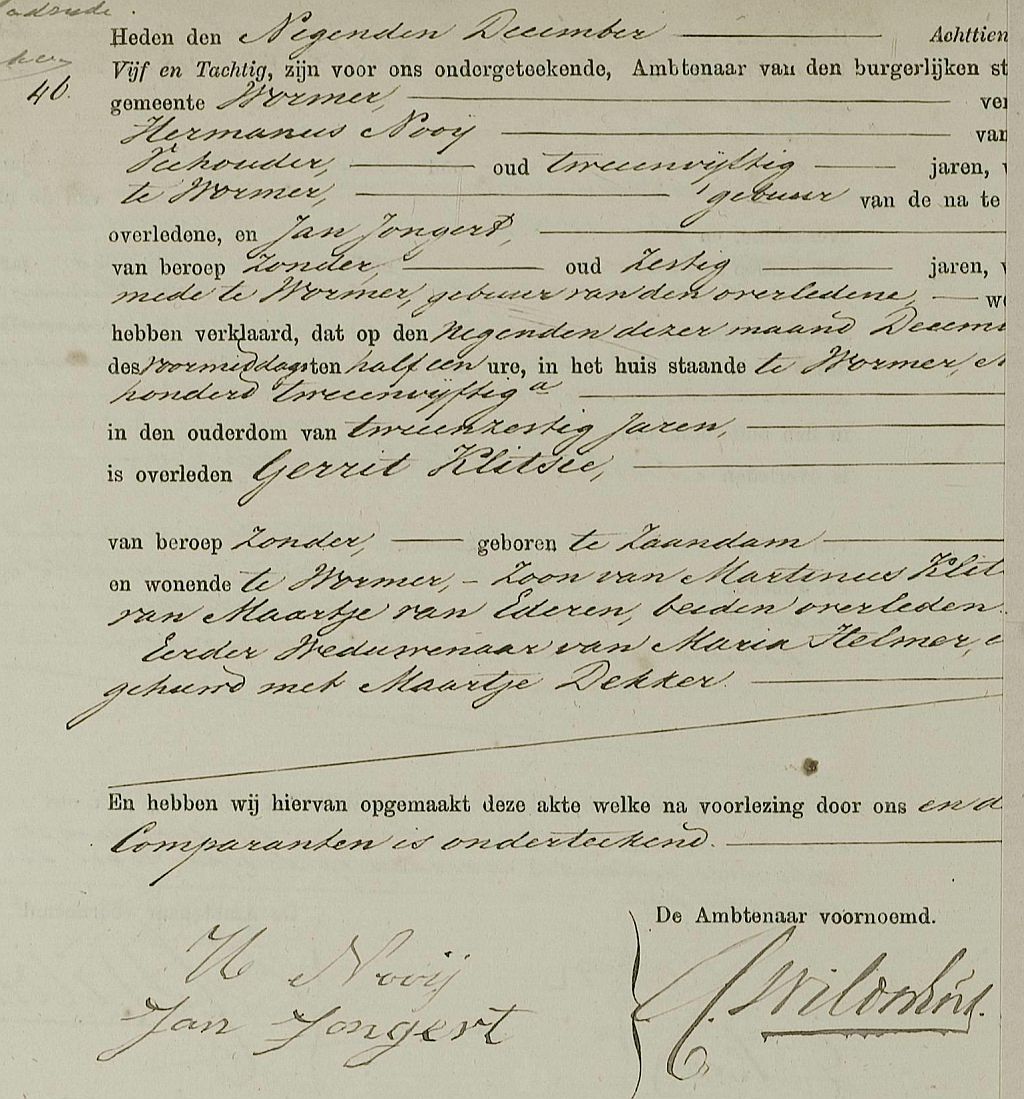 Heden den Negenden December Achttien
Vijf en Tachtig, zijn voor ons ondergeteekende, Ambtenaar van den burgerlijken st
46.
gemeente Wormer, ver
Hermanus Nooij van
Veehouder, oud tweeenvijftig jaren, w
te Wormer, gebuur van de na te
overledene, en Jan Jongert,
van beroep Zonder, oud Zestig jaren, w
mede te Wormer, gebuur van den overledene, we
hebben verklaard, dat op den Negenden dezer maand Decem
des voormiddags ten half een ure, in het huis staande te Wormer, N
honderd tweeenvijftig a
in den ouderdom van tweeenzestig Jaren,
is overleden Gerrit Klitsie,
van beroep Zonder, geboren te Zaandam
en wonende te Wormer, - Zoon van Martinus Klit
van Maartje van Ederen, beiden overleden.
Eerder Weduwenaar van Maria Helmer, e
gehuwd met Maartje Dekker.
En hebben wij hiervan opgemaakt deze akte welke na voorlezing door ons en d
Comparanten is onderteekend.
De Ambtenaar voornoemd.
H Nooij
Jan Jongert